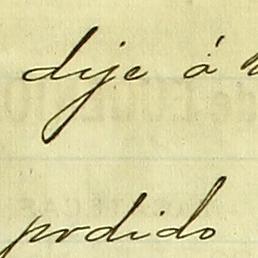 dije á
podido